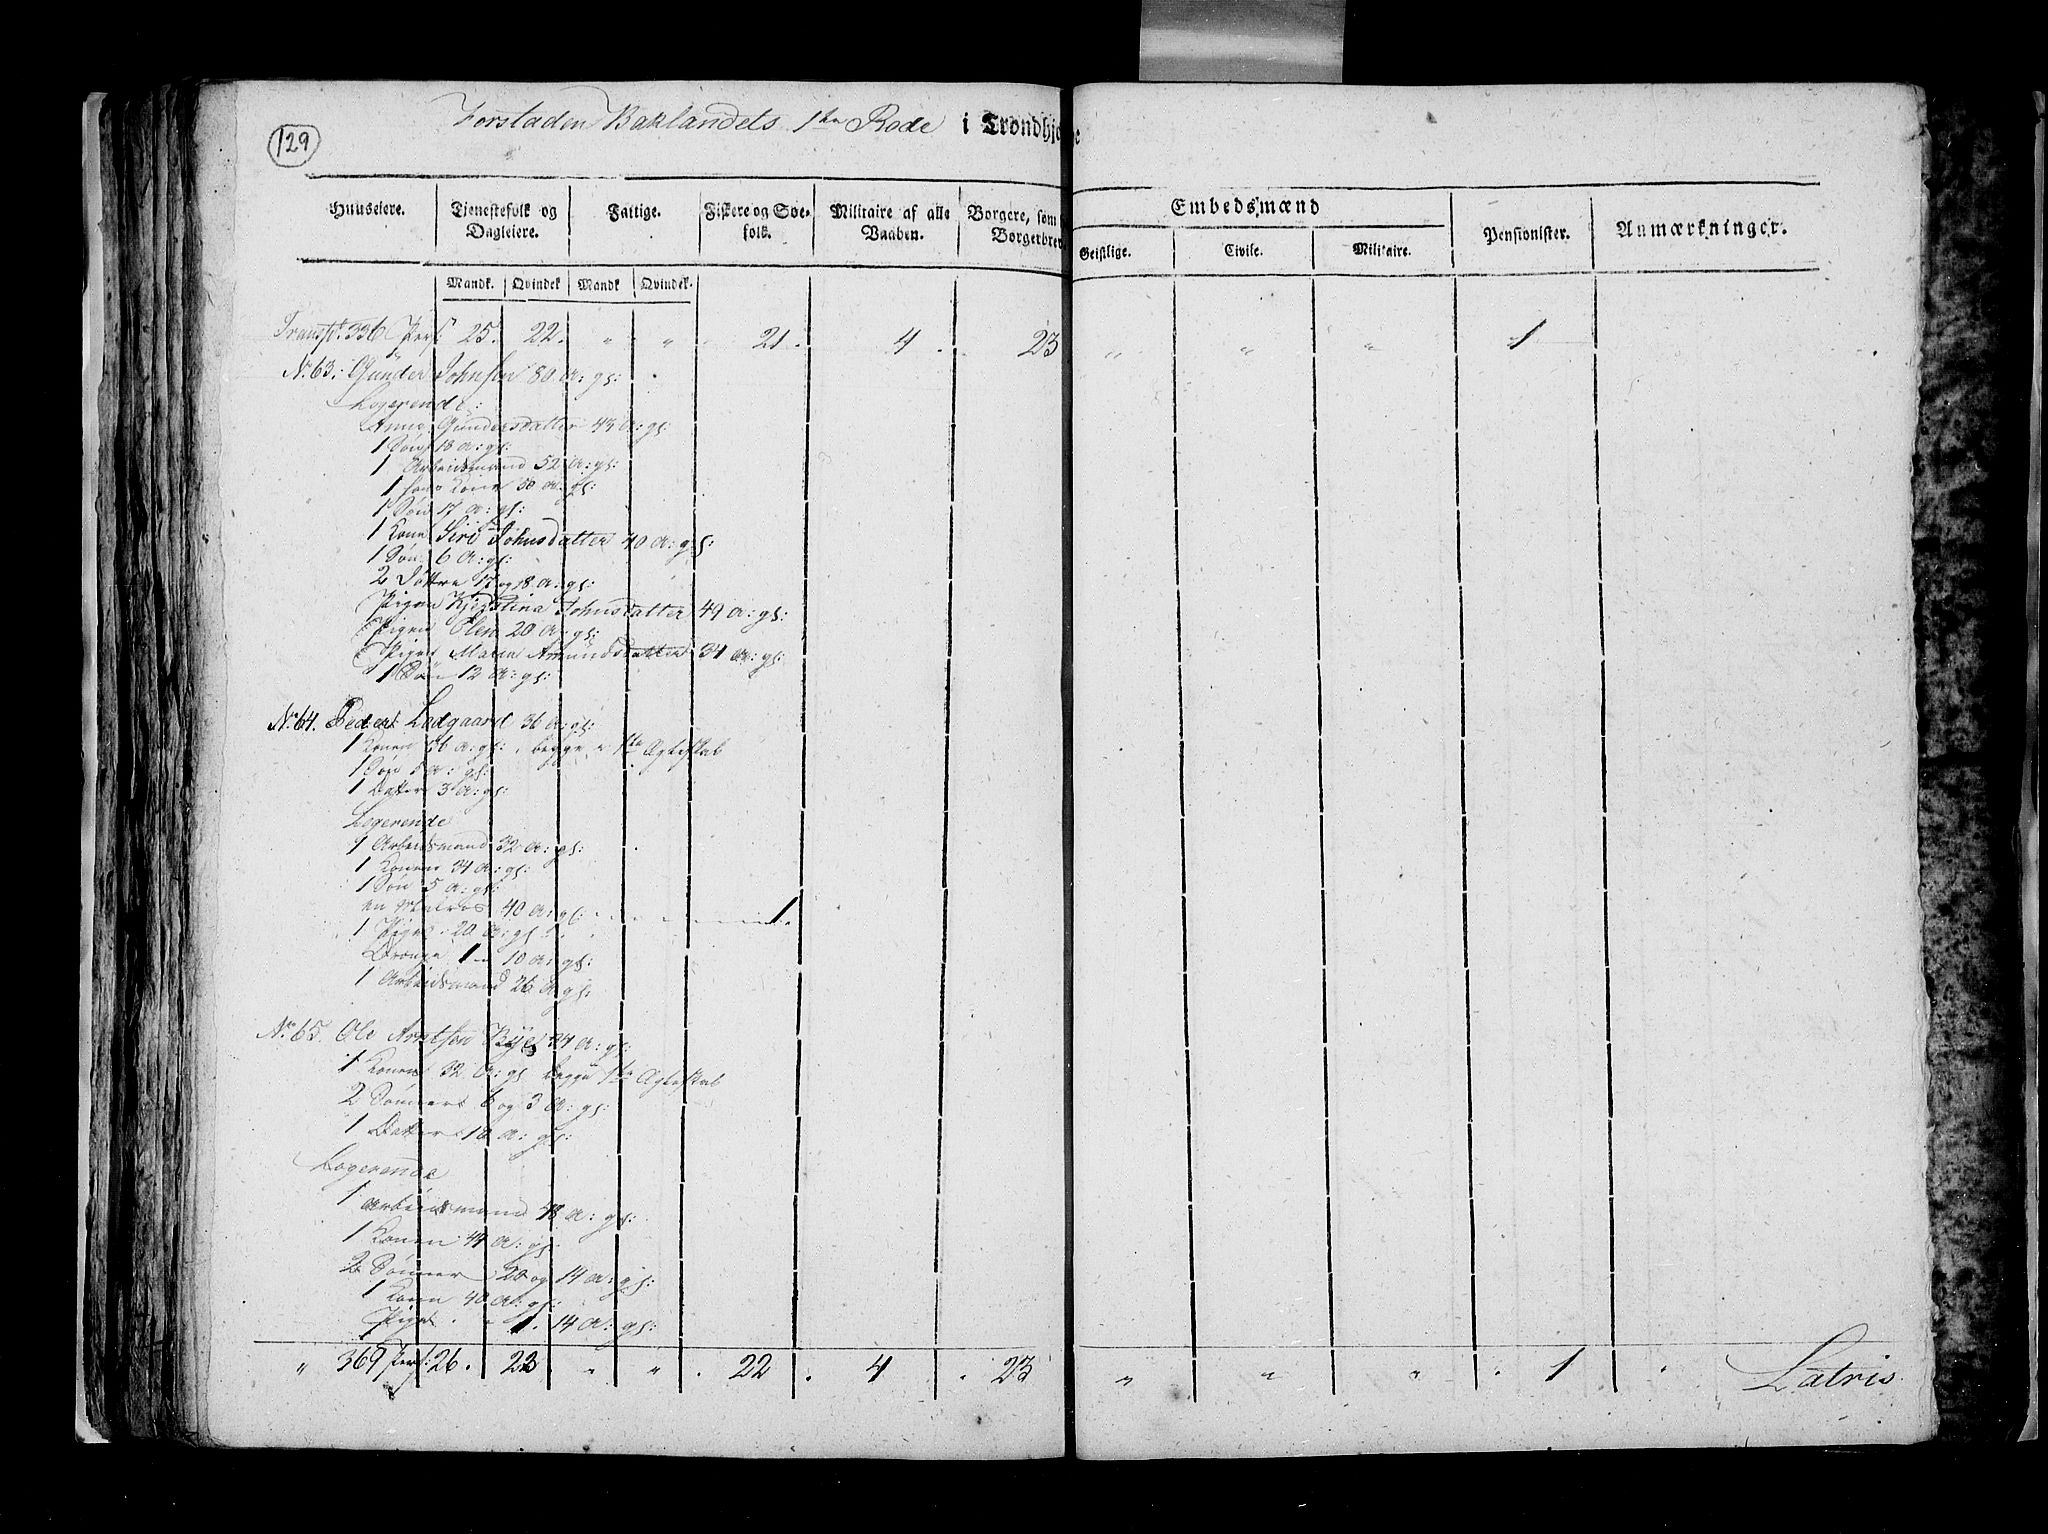 129
Forstaden Baklandets 1ste Rode i Trondhje
Huuseiere. Tjenestefolk og Dagleiere. Fattige. Fiskere og Søe-folk. Militaire af alle Vaaben. Borgere, som Borgerbrev Embedsmænd Geistlige. Civile. Militaire. Pensionister. Anmærkninger.
Mandk. Qvindek Mandk Qvindek.
Transp. 336 Pers 25. 22. " " 21. 4. 23 " " " 1
No 63: Gunder Johnsen 80 A: gl:
Logerende:
Anne Gundersdatter 43 A: gl:
1 Søn 18 A: gl:
1 Arbeidsmand 52 A: gl:
1 hans Kone 50 A: gl:
1 Søn 17 A: gl:
1 Kone Siri Johnsdatter 40 A: gl:
1 Søn 6 A: gl:
2 Døttre 17 og 8 A: gl:
Pigen Kjerstina Johnsdatter 49 A: gl:
Pigen Olen 20 A: gl:
Pigen Maren Amundsdatter 34 A: gl:
1 Søn 12 A: gl:
No 64. Peder Ladgaard 36 A: gl:
1 Konen 36 A: gl: begge i 1ste Agteskab
1 Søn A: gl:
1 Datter 3 A: gl:
Logerende
1 Arbeidsmand 32 A: gl:
1 Konen 34 A: gl:
1 Søn 5 A: gl:
en Matros 40 A: gl: 1.
1 Pige 20 A: gl:
1 10 A: gl:
1 Arbeidsmand 26 A gl:
No 65. Ole Arntsen Bye 34 A: gl:
1 Konen 32 A: gl begge 1ste Agteskab
2 Sønner 6 og 3 A: gl:
1 Datter 10 A: gl:
Logerende
1 Arbeidsmand 48 A: gl:
1 Konen 44 A: gl:
2 Sønner 20 og 14 A: gl:
1 Konen 40 A: gl:
Pige 1. 14 A: gl:
" 369 Pers: 26. 23 " " 22. 4 23 " " " 1 Latris